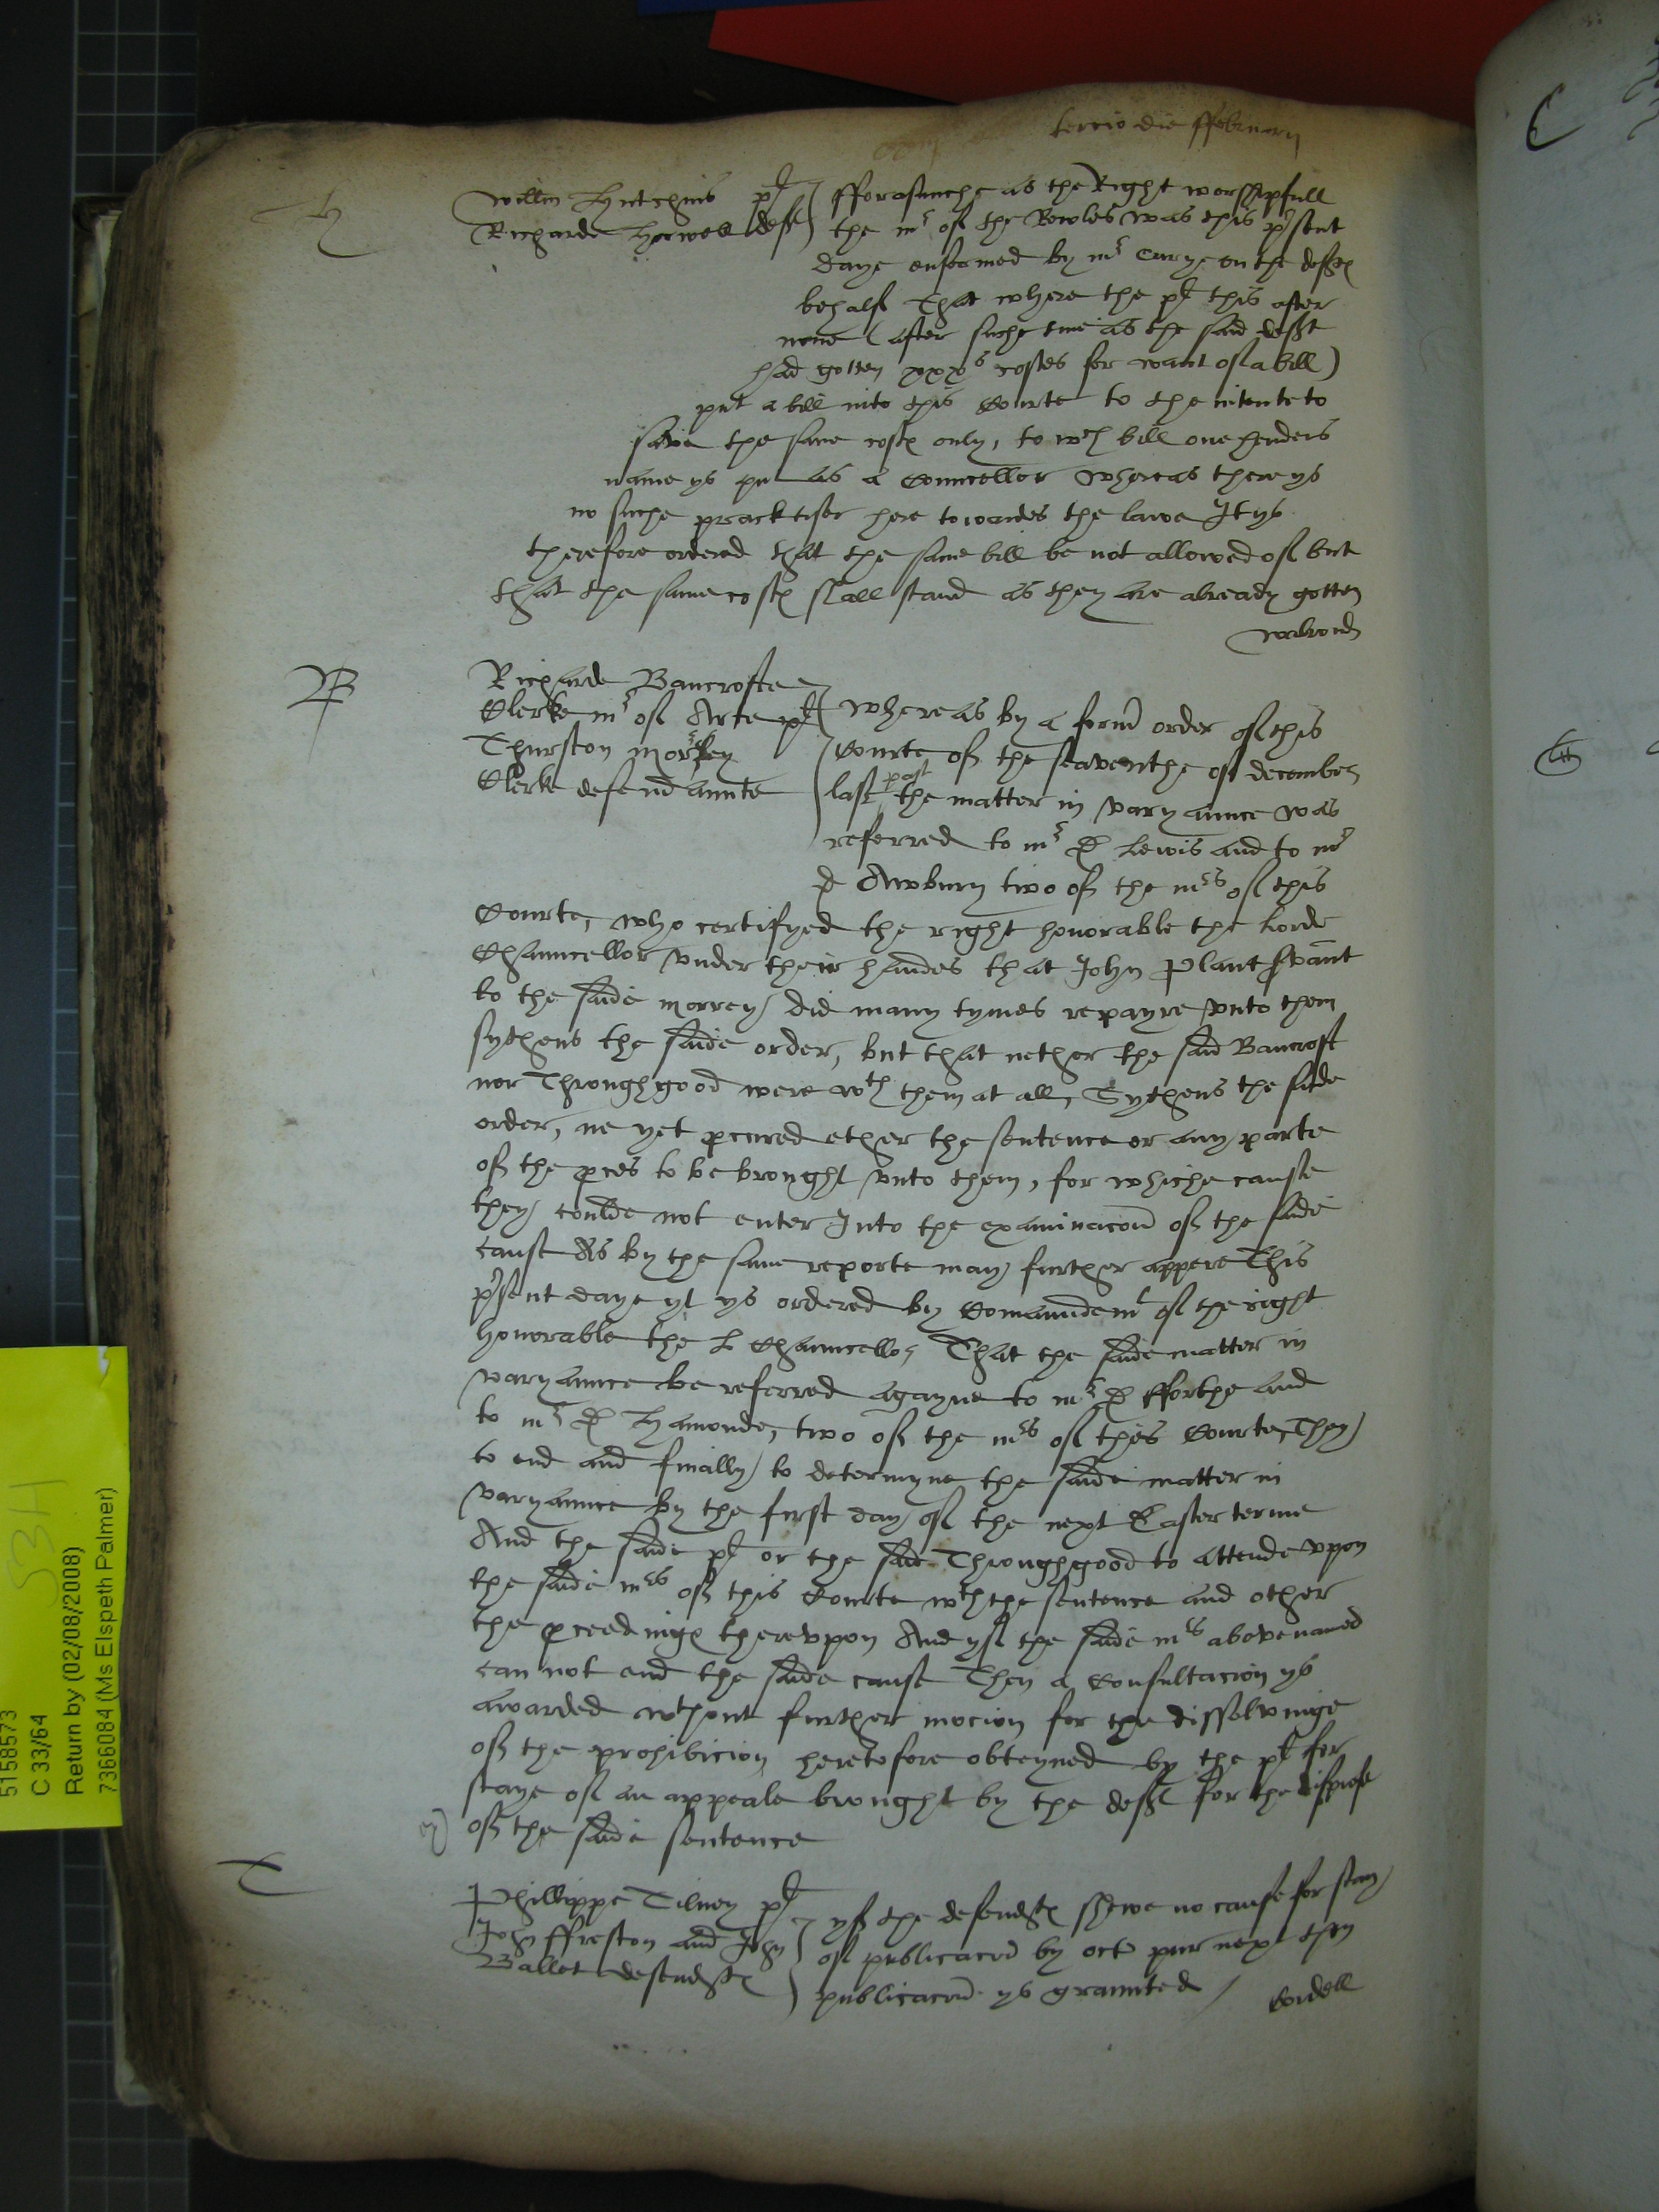 tercio die ffebruarij
H
Willm Hutchins pl
Richarde Horwell deft
fforasmuche as the Right worshipfull
the mr of the Rowles was this pnsent
daye enformed by mr Carye on the defts
behalf That where the pl this after
none (after suche tme as the said deft
had gotten xxxs costes for want of a bill)
put a bill into this Courte to the intente to
save the same costs only, to wch bill one henders
name ys put as a Councellor whereas there ys
no suche practtiser here towardes the lawe It ys
therefore ordered that the same bill be not allowed of but
that the same costs shall stand as they are already gotten
walrond
B
Richarde Bancrofte
Clerke mr of Arte pl
Thurston Morrey
Clerke defendaunte
Whereas by a formr order of this
Courte of the seaventhe of december
last past the matter in varyaunce was
referred to mr D Lewis and to mr
D Awbury two of the mrs of this
Courte, who certifyed the right honorable the Lorde
Chauncellor vnder their handes that John Plant srvant
to the saide morrey did many tymes repayre vnto them
sythens the saide order, but that nether the said Bancroft
nor Throughgood were wth them at all, Sythens the saide
order, ne yet pcured ether the sentence or any parte
of the pces to be brought vnto them, for whiche cause
they coulde not enter Into the examinacon of the saide
cause As by the same reporte may further appere This
pnsent daye yt ys ordered by Comaundemt of the right
honorable the L Chauncellor That the saide matter in
varyaunce be referred agayne to mr D fforthe and
to mr D Hamonde, two of the mrs of this Courte, They
to end and finally to determyne the saide matter in
varyaunce by the first day of the next Easter terme
And the saide pl or the said Throughgood to attende vpon
the saide mrs of this Courte wth the sentence and other
the pceedings therevpon And yf the saide mrs abovenamed
can not end the saide cause Then a Consultacion ys
awarded wthout further mocion for the dissolvinge
of the prohibicion heretofore obteyned by the pl for
staye of an appeale brought by the deft for the
of the saide sentence
T
Phillippe Tilney pl
John ffreston and John
Ballet defendts
yf the defendts shewe no cause for stay
of publicacon by oct pur next then
publicacon ys graunted
Cordell
5158573
C 33/64
Return by (02/08/2008)
7366084 (Ms Elspeth Palmer)
53H